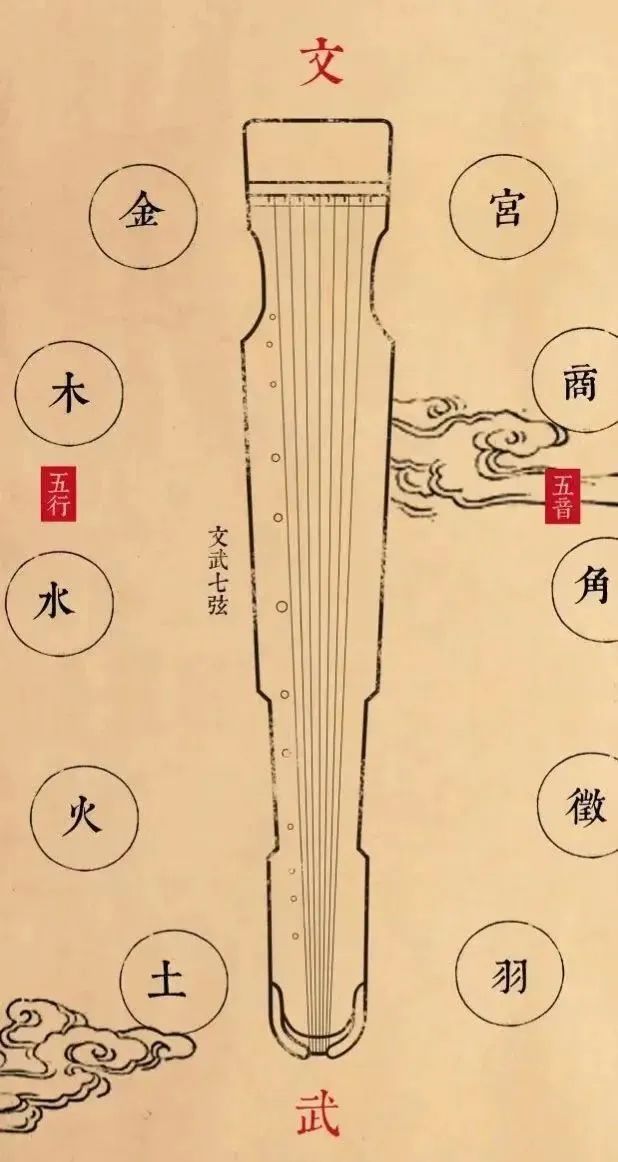 文
金
宮
木
商
五行
五音
文武七弦
水
角
火
徵
土
羽
武